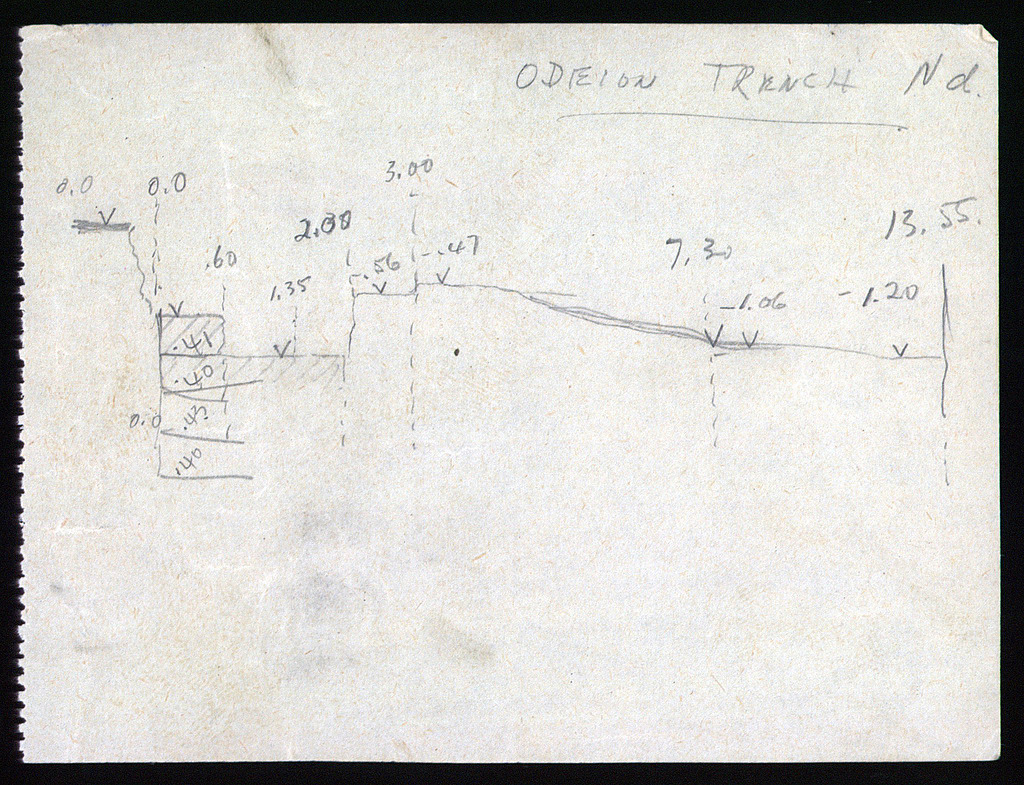 ODEION TRENCH Nd.
3.00
0.0 0.0
13.55.
.60 .56 -.47 7.30
1.35 -1.06 -1.20
.41
.40
0.0 .43
.40